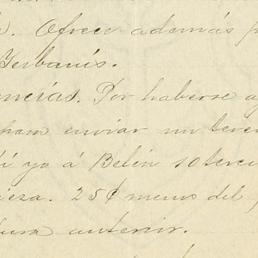 Ofrece además p
Gerbanis.
encias. Por haberse a
ham enviar un terce
tí yo á Belén 10 terci
ieza. 25¢ menos del p
tura anterior.